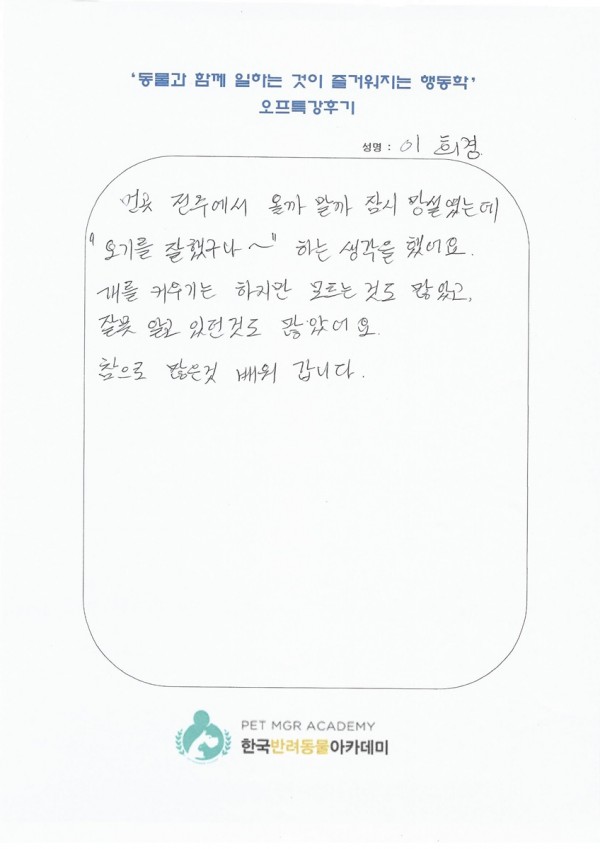 '동물과 함께 일하는 것이 즐거워지는 행동학'
오프특강후기
성명 : 이 희경
먼곳 전주에서 올까 말까 잠시 망설였는데
"오기를 잘했구나~" 하는 생각을 했어요.
개를 키우기는 하지만 모르는것도 많았고,
잘못 알고 있던것도 많았어요.
참으로 많은것 배워 갑니다.
PET MGR ACADEMY
한국반려동물아카데미